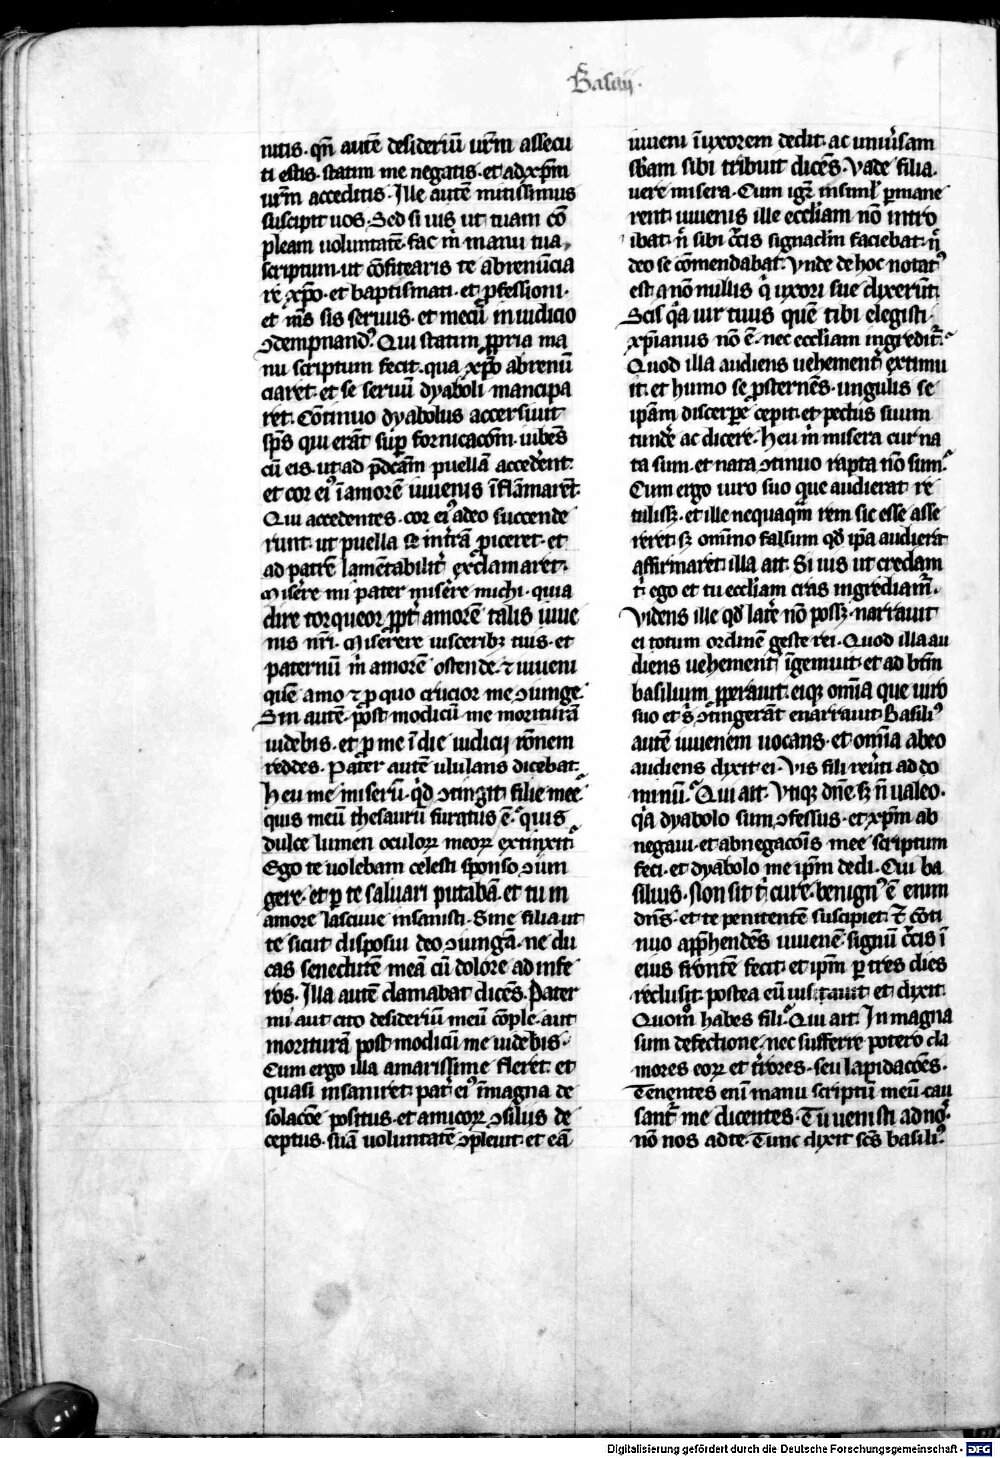 Basilij.
nitis. qn̄ autē desideriū ur̄m assecu
ti estis. statim me negatis. et ad xp̄m
ur̄m acceditis. Ille autē mitissimus
suscipit uos. Sed si uis ut tuam cō
pleam uoluntatē. fac m̄ manu tua
scriptum. ut cōfitearis te abrenūcia
re xp̄o. et baptismati. et p̱fessioni.
et m̄s sis seruus. et mecū in iudicio
ꝯdempnandꝰ. Qui statim ꝓpria ma
nu scriptum fecit. qua xp̄o abrenū
ciaret. et se seruū dyaboli mancipa
ret. Cōtinuo dyabolus accersiuit
sp̄s qui erāt sup̱ fornicacōm. iubēs
cū eis. ut ad p̄dcām puellā accederēt.
et cor eiꝰ ī amorē iuuenis īflāmarēt.
Qui accedentes. cor eiꝰ adeo succende
runt. ut puella se in tr̄ā ꝓiceret. et
ad patrē lamētabilit̓ exclamaret.
Misere mi pater miserē michi. quia
dire torqueor ꝓpt̓ amorē talis iuue
nis nr̄i. Miserere uisceribꝫ tuis. et
paternū m̄ amorē ostende. ⁊ iuueni
quē amo ⁊ p̱ quo crucior me ꝯiunge.
Sin autē. post modicū me moriturā
uidebis. et p̱ me ī die iudicij rōnem
reddes. Pater autē ululans dicebat.
Heu me miserū. q̓d ꝯtingit filie mee.
quis meū thesaurū furatus ē. quis
dulce lumen oculoꝝ meoꝝ extinxit.
Ego te uolebam celesti sponso ꝯiun
gere. et p̱ te saluari putabā. et tu in
amore lasciuie insanisti. Sine filia ut
te sicut disposui deo ꝯiungā. ne du
cas senectutē meā cū dolore ad infe
ros. Illa autē clamabat dicēs. Pater
mi aut cito desideriū meū cōple. aut
morituram post modicū me uidebis.
Cum ergo illa amarissime fleret. et
quasi insaniret. pat̓ eiꝰ ī magna de
solacōe positus. et amicoꝝ ꝯsiliis de
ceptus. suā uoluntatē ꝯpleuit. et eā
iuueni ī uxorem dedit. ac uniu̓sam
sbām sibi tribuit dicēs. Vade filia.
uere misera. Cum igr̄ insimĺ p̱mane
rent. iuuenis ille eccl̄iam nō intro
ibat. n̄ sibi c̓cis signaclm faciebat. n̄
deo se cōmendabat. Vnde de hoc notatꝰ
est a nōnullis. q̓ uxori sue dixerūt.
Scis q̓a uir tuus quē tibi elegisti.
xp̄ianus nō ē. nec eccl̄iam ingredit̓.
Quod illa audiens uehement̓ extimu
it. et humo se ꝓsternēs. ungulis se
ip̄am discerpe cepit. et pectus suum
tundē ac dicere. Heu m̄ misera cur na
ta sum. et nata ꝯtinuo rapta nō sum.
Cum ergo uiro suo que audierat re
tulissꝫ. et ille nequaqm̄ rem sic esse asse
reret. sꝫ omīno falsum qd̓ ip̄a audierat
affirmaret. illa ait. Si uis ut credam
t̓. ego et tu eccl̄iam cras ingrediam̓.
Videns ille qd̓ latē nō possꝫ. narrauit
ei totum ordinē geste rei. Quod illa au
diens uehement̓ īgemuit. et ad btm̄
basilium ꝓperauit. eiqꝫ om̄ia que uiro
suo et s̓ ꝯtingerāt enarrauit. Basiliꝰ
autē iuuenem uocans. et om̄ia ab eo
audiens dixit ei. Vis fili reu̓ti ad do
minū. Qui ait. Vtiqꝫ dn̄e. sꝫ n̄ ualeo.
q̓a dyabolo sum ꝓfessus. et xp̄m ab
negaui. et abnegacōis mee scriptum
feci. et dyabolo me ipm̄ dedi. Cui ba
silius. Non sit t̓ cure. benignꝰ ē enim
dn̄s. et te penitentē suscipiet. Et cōti
nuo app̄hendēs iuuenē. signū c̓cis ī
eius frontē fecit. et ipm̄ p̱ tres dies
reclusit. postea eū uisitauit et dixit.
Quom̄ habes fili. Qui ait. In magna
sum defectione. nec sufferre potero cla
mores eoꝝ et t̓rores. seu lapidacōes.
Tenentes enī manu scriptū meū. cau
sant̓ me dicentes. Tu uenisti ad nos.
nō nos ad te. Tunc dixit scs̄ basiliꝰ.
Digitalisierung gefördert durch die Deutsche Forschungsgemeinschaft - DFG